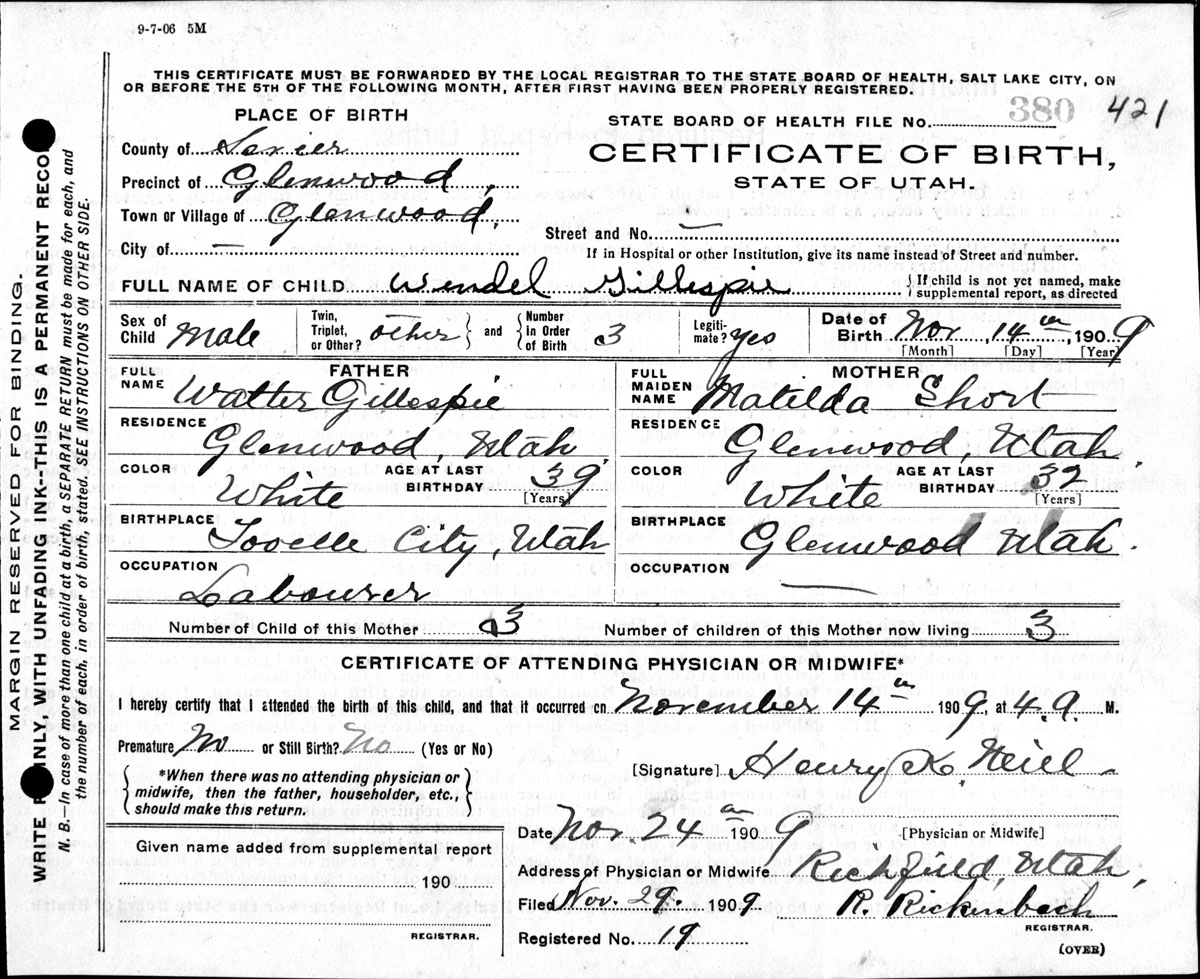 9-7-06 5M
THIS CERTIFICATE MUST BE FORWARDED BY THE LOCAL REGISTRAR TO THE STATE BOARD OF HEALTH, SALT LAKE CITY, ON
OR BEFORE THE 5TH OF THE FOLLOWING MONTH, AFTER FIRST HAVING BEEN PROPERLY REGISTERED.
PLACE OF BIRTH
STATE BOARD OF HEALTH FILE No. 380 421
County of Sevier
CERTIFICATE OF BIRTH,
Precinct of Glenwood,
STATE OF UTAH.
Town or Village of Glenwood,
Street and No. —
City of —
If in Hospital or other Institution, give its name instead of Street and number.
FULL NAME OF CHILD Wendel Gillespie { If child is not yet named, make supplemental report, as directed
Sex of Child Male Twin, Triplet, or Other? other } and { Number in Order of Birth 3 Legitimate? yes Date of Birth Nov. 14th, 1909
[Month] [Day] [Year]
FATHER
MOTHER
FULL NAME Walter Gillespie
FULL MAIDEN NAME Matilda Short
RESIDENCE Glenwood, Utah
RESIDENCE Glenwood, Utah.
COLOR White AGE AT LAST BIRTHDAY 39 [Years]
COLOR White AGE AT LAST BIRTHDAY 32 [Years]
BIRTHPLACE Tooelle City, Utah
BIRTHPLACE Glenwood Utah.
OCCUPATION Labourer
OCCUPATION —
Number of Child of this Mother 3
Number of children of this Mother now living 3
CERTIFICATE OF ATTENDING PHYSICIAN OR MIDWIFE*
I hereby certify that I attended the birth of this child, and that it occurred on November 14th 1909, at 4.a. M.
Premature No or Still Birth? No (Yes or No)
{ *When there was no attending physician or midwife, then the father, householder, etc., should make this return. }
[Signature] Henry K. Neill
Date Nov. 24th 1909 [Physician or Midwife]
Given name added from supplemental report
190
REGISTRAR.
Address of Physician or Midwife Richfield, Utah,
Filed Nov. 29. 1909 R. Rickenbach
REGISTRAR.
Registered No. 19
(OVER)
MARGIN RESERVED FOR BINDING.
WRITE PLAINLY WITH UNFADING INK--THIS IS A PERMANENT RECORD
N. B.—In case of more than one child at a birth, a SEPARATE RETURN must be made for each, and
the number of each, in order of birth, stated. SEE INSTRUCTIONS ON OTHER SIDE.